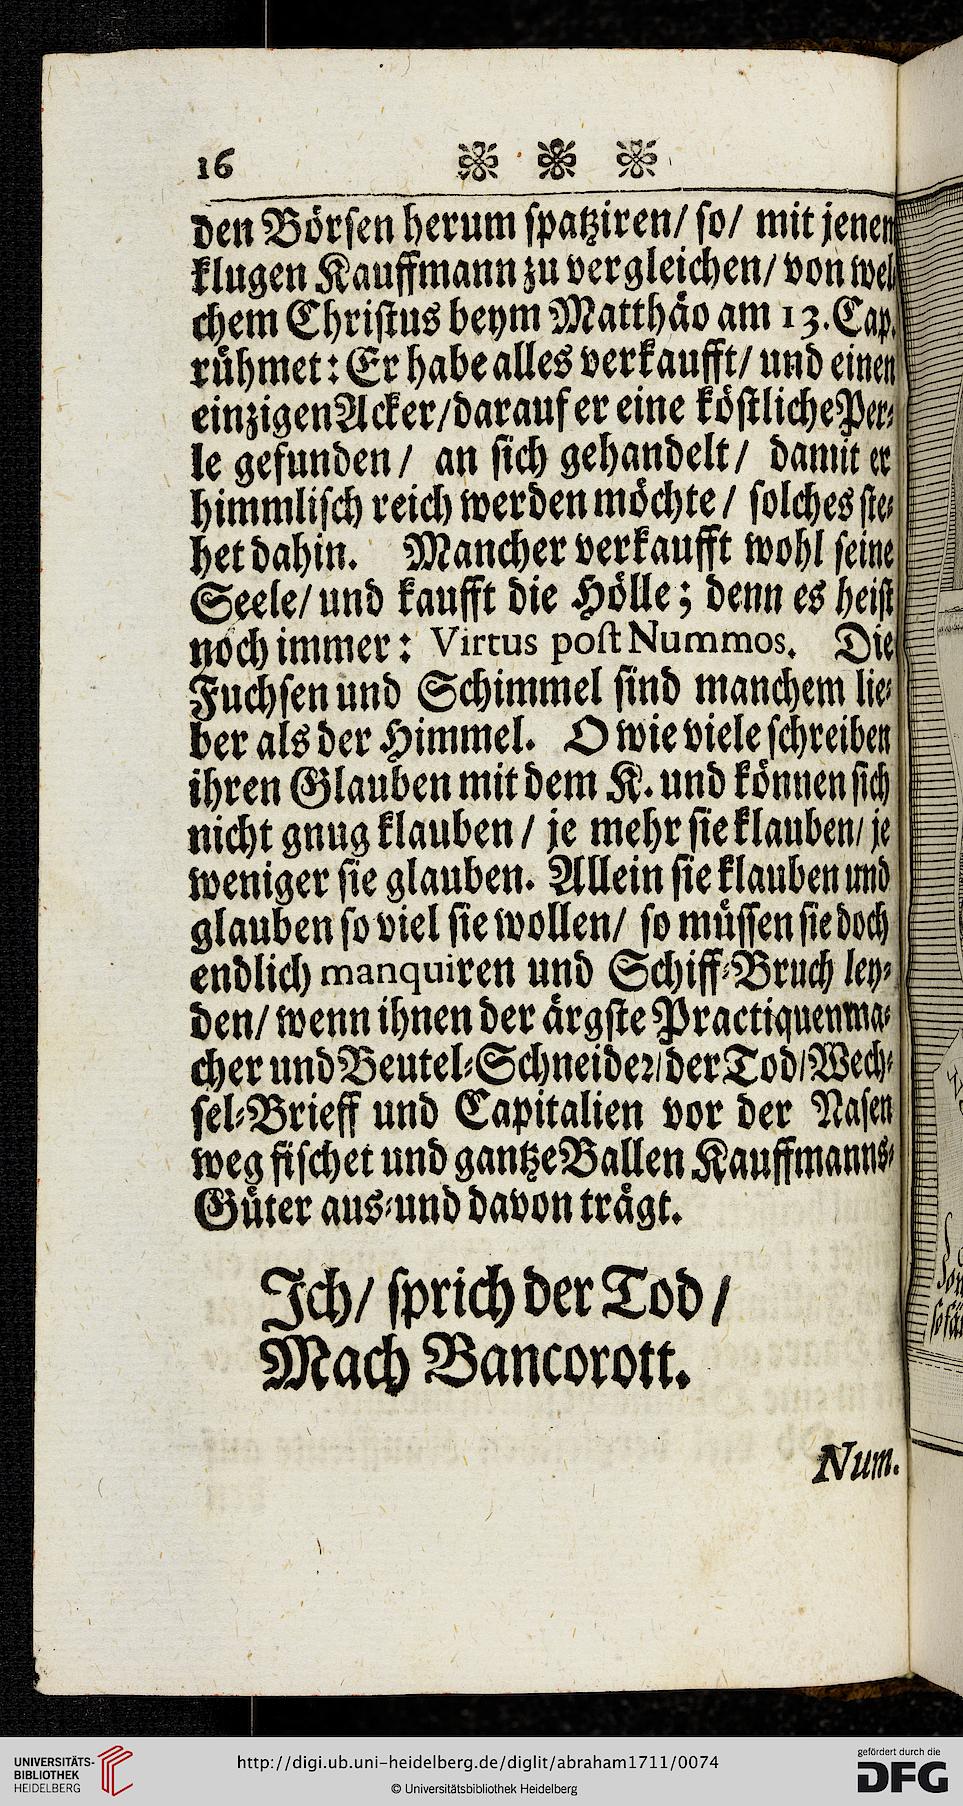 16
den Börsen herum spatziren/ so/ mit jenem
klugen Kauffmann zu vergleichen/ von wel
chem Christus beym Matthäo am 13. Cap.
rühmet: Er habe alles verkaufft/ und einen
einzigen Acker/ darauf er eine köstliche Per-
le gefunden/ an sich gehandelt/ damit er
himmlisch reich werden möchte/ solches ste-
het dahin. Mancher verkaufft wohl seine
Seele/ und kaufft die Hölle; denn es heist
noch immer: Virtus post Nummos. Die
Fuchsen und Schimmel sind manchem lie-
ber als der Himmel. O wie viele schreiben
ihren Glauben mit dem K. und können sich
nicht gnug klauben/ je mehr sie klauben/ je
weniger sie glauben. Allein sie klauben und
glauben so viel sie wollen/ so müssen sie doch
endlich manquiren und Schiff-Bruch ley-
den/ wenn ihnen der ärgste Practiquenma-
cher und Beutel-Schneider/ der Tod/ Wech-
sel-Brieff und Capitalien vor der Nasen
weg fischet und gantze Ballen Kauffmanns-
Güter aus- und davon trägt.
Ich/ sprich der Tod/
Mach Bancorott.
Num.
UNIVERSITÄTS-
BIBLIOTHEK
HEIDELBERG
http://digi.ub.uni-heidelberg.de/diglit/abraham1711/0074
© Universitätsbibliothek Heidelberg
gefördert durch die
DFG